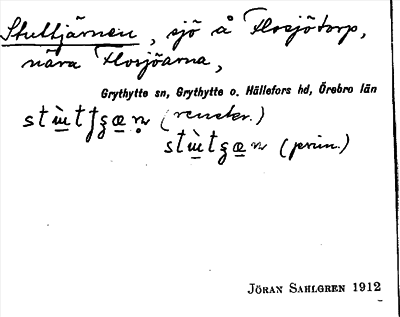 Stuttjärnen, sjö å Flosjötorp,
nära Flosjöarna,
Grythytte sn, Grythytte o. Hällefors hd, Örebro län
(renskr.)
(prim.)
JÖRAN SAHLGREN 1912